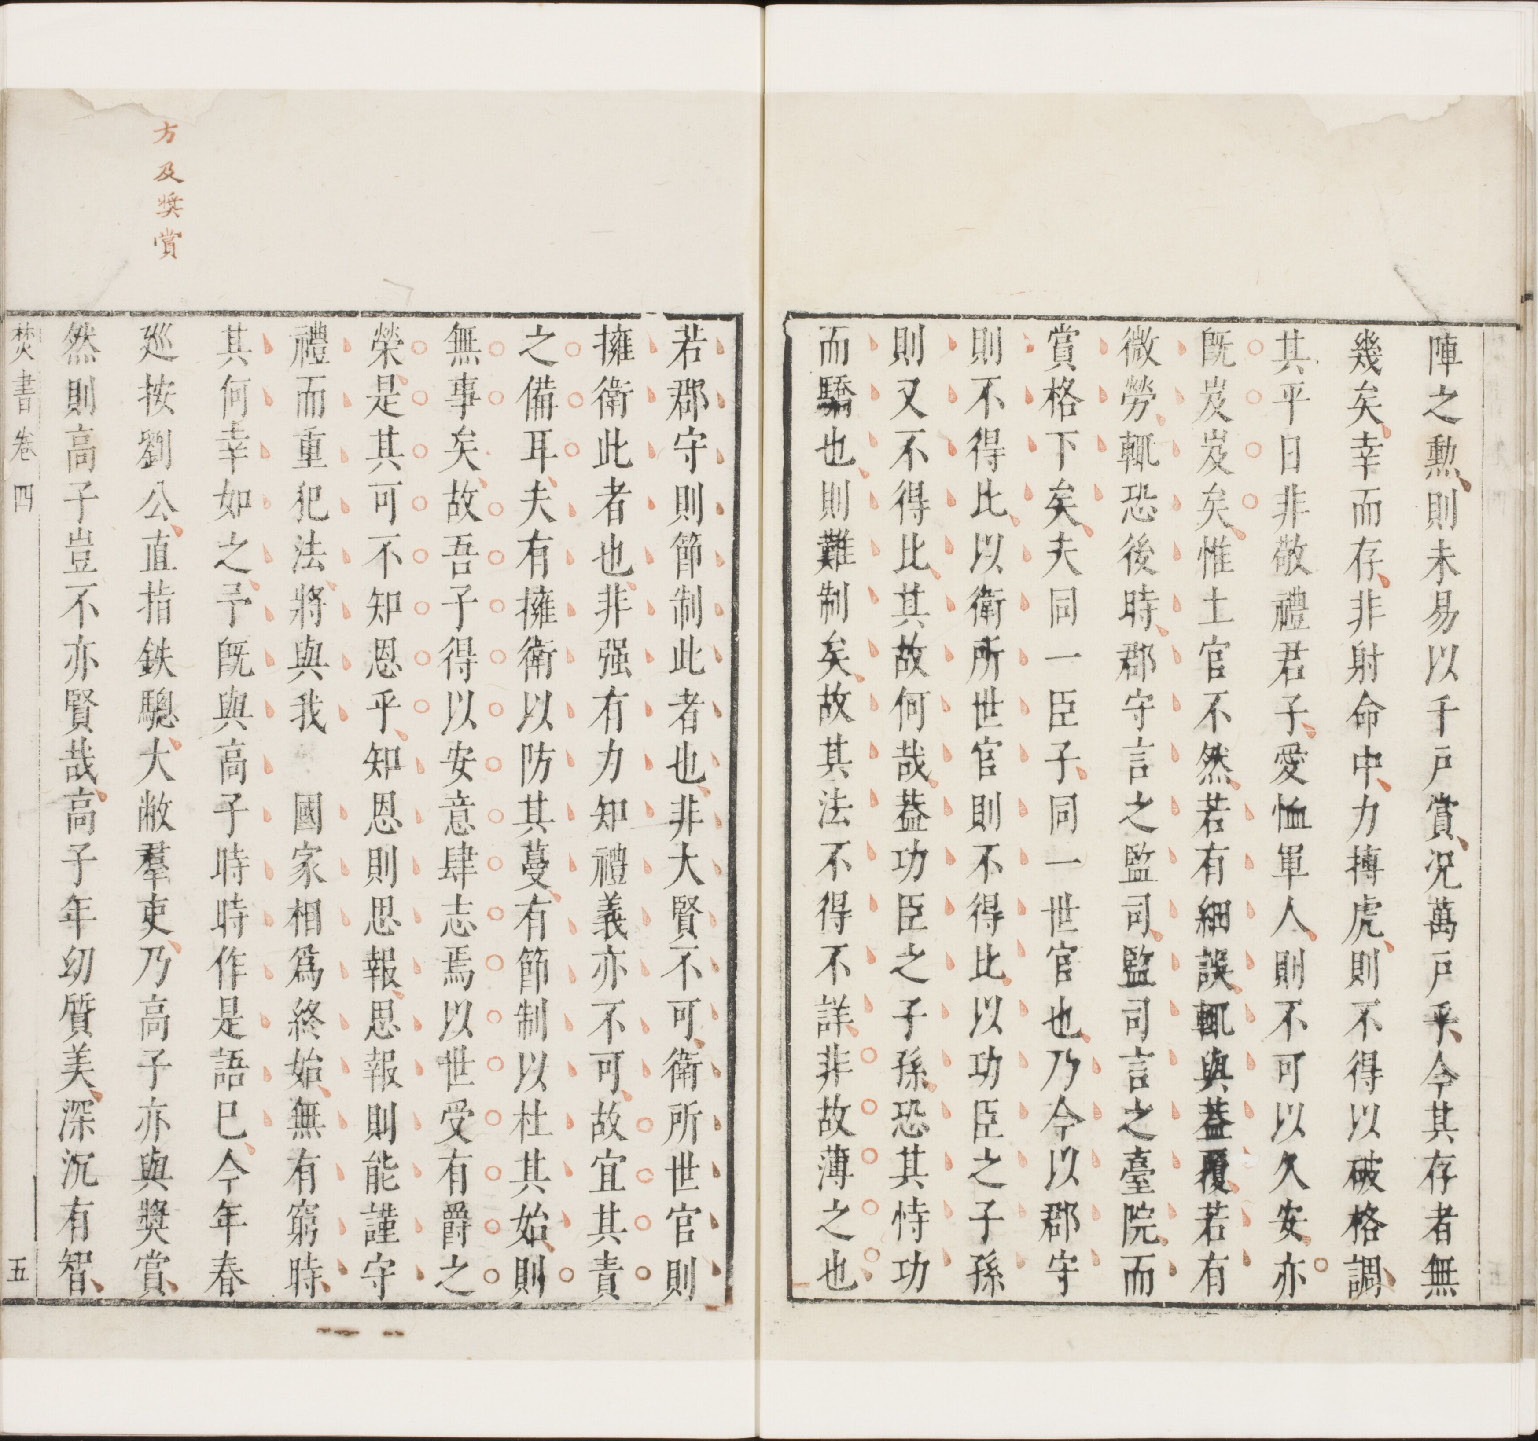 陣之勲則未易以千戸賞况萬戸乎今其存者無
幾矣幸而存非射命中力搏虎則不得以破格調
其平日非敬禮君子愛恤軍人則不可以久安亦
旣岌岌矣惟土官不然若有細誤輒與蓋覆若有
微勞輒恐後時郡守言之監司監司言之臺院而
賞格下矣夫同一臣子同一世官也乃今以郡守
則不得比以衛所世官則不得比以功臣之子孫
則又不得比其故何哉葢功臣之子孫恐其恃功
而驕也則難制矣故其法不得不詳非故薄之也
若郡守則節制此者也非大賢不可衛所世官則
擁衛此者也非强有力知禮義亦不可故宜其責
之備耳夫有擁衛以防其蔓有節制以杜其始則
無事矣故吾子得以安意肆志焉以世受有爵之
榮是其可不知恩乎知恩則思報思報則能謹守
禮而重犯法將與我　國家相爲終始無有窮時
其何幸如之予旣與高子時時作是語巳今年春
廵按劉公直指鉄驄大敝羣吏乃高子亦與獎賞
然則高子豈不亦賢哉高子年幼質美深沉有智
焚書卷四
五
方及獎賞